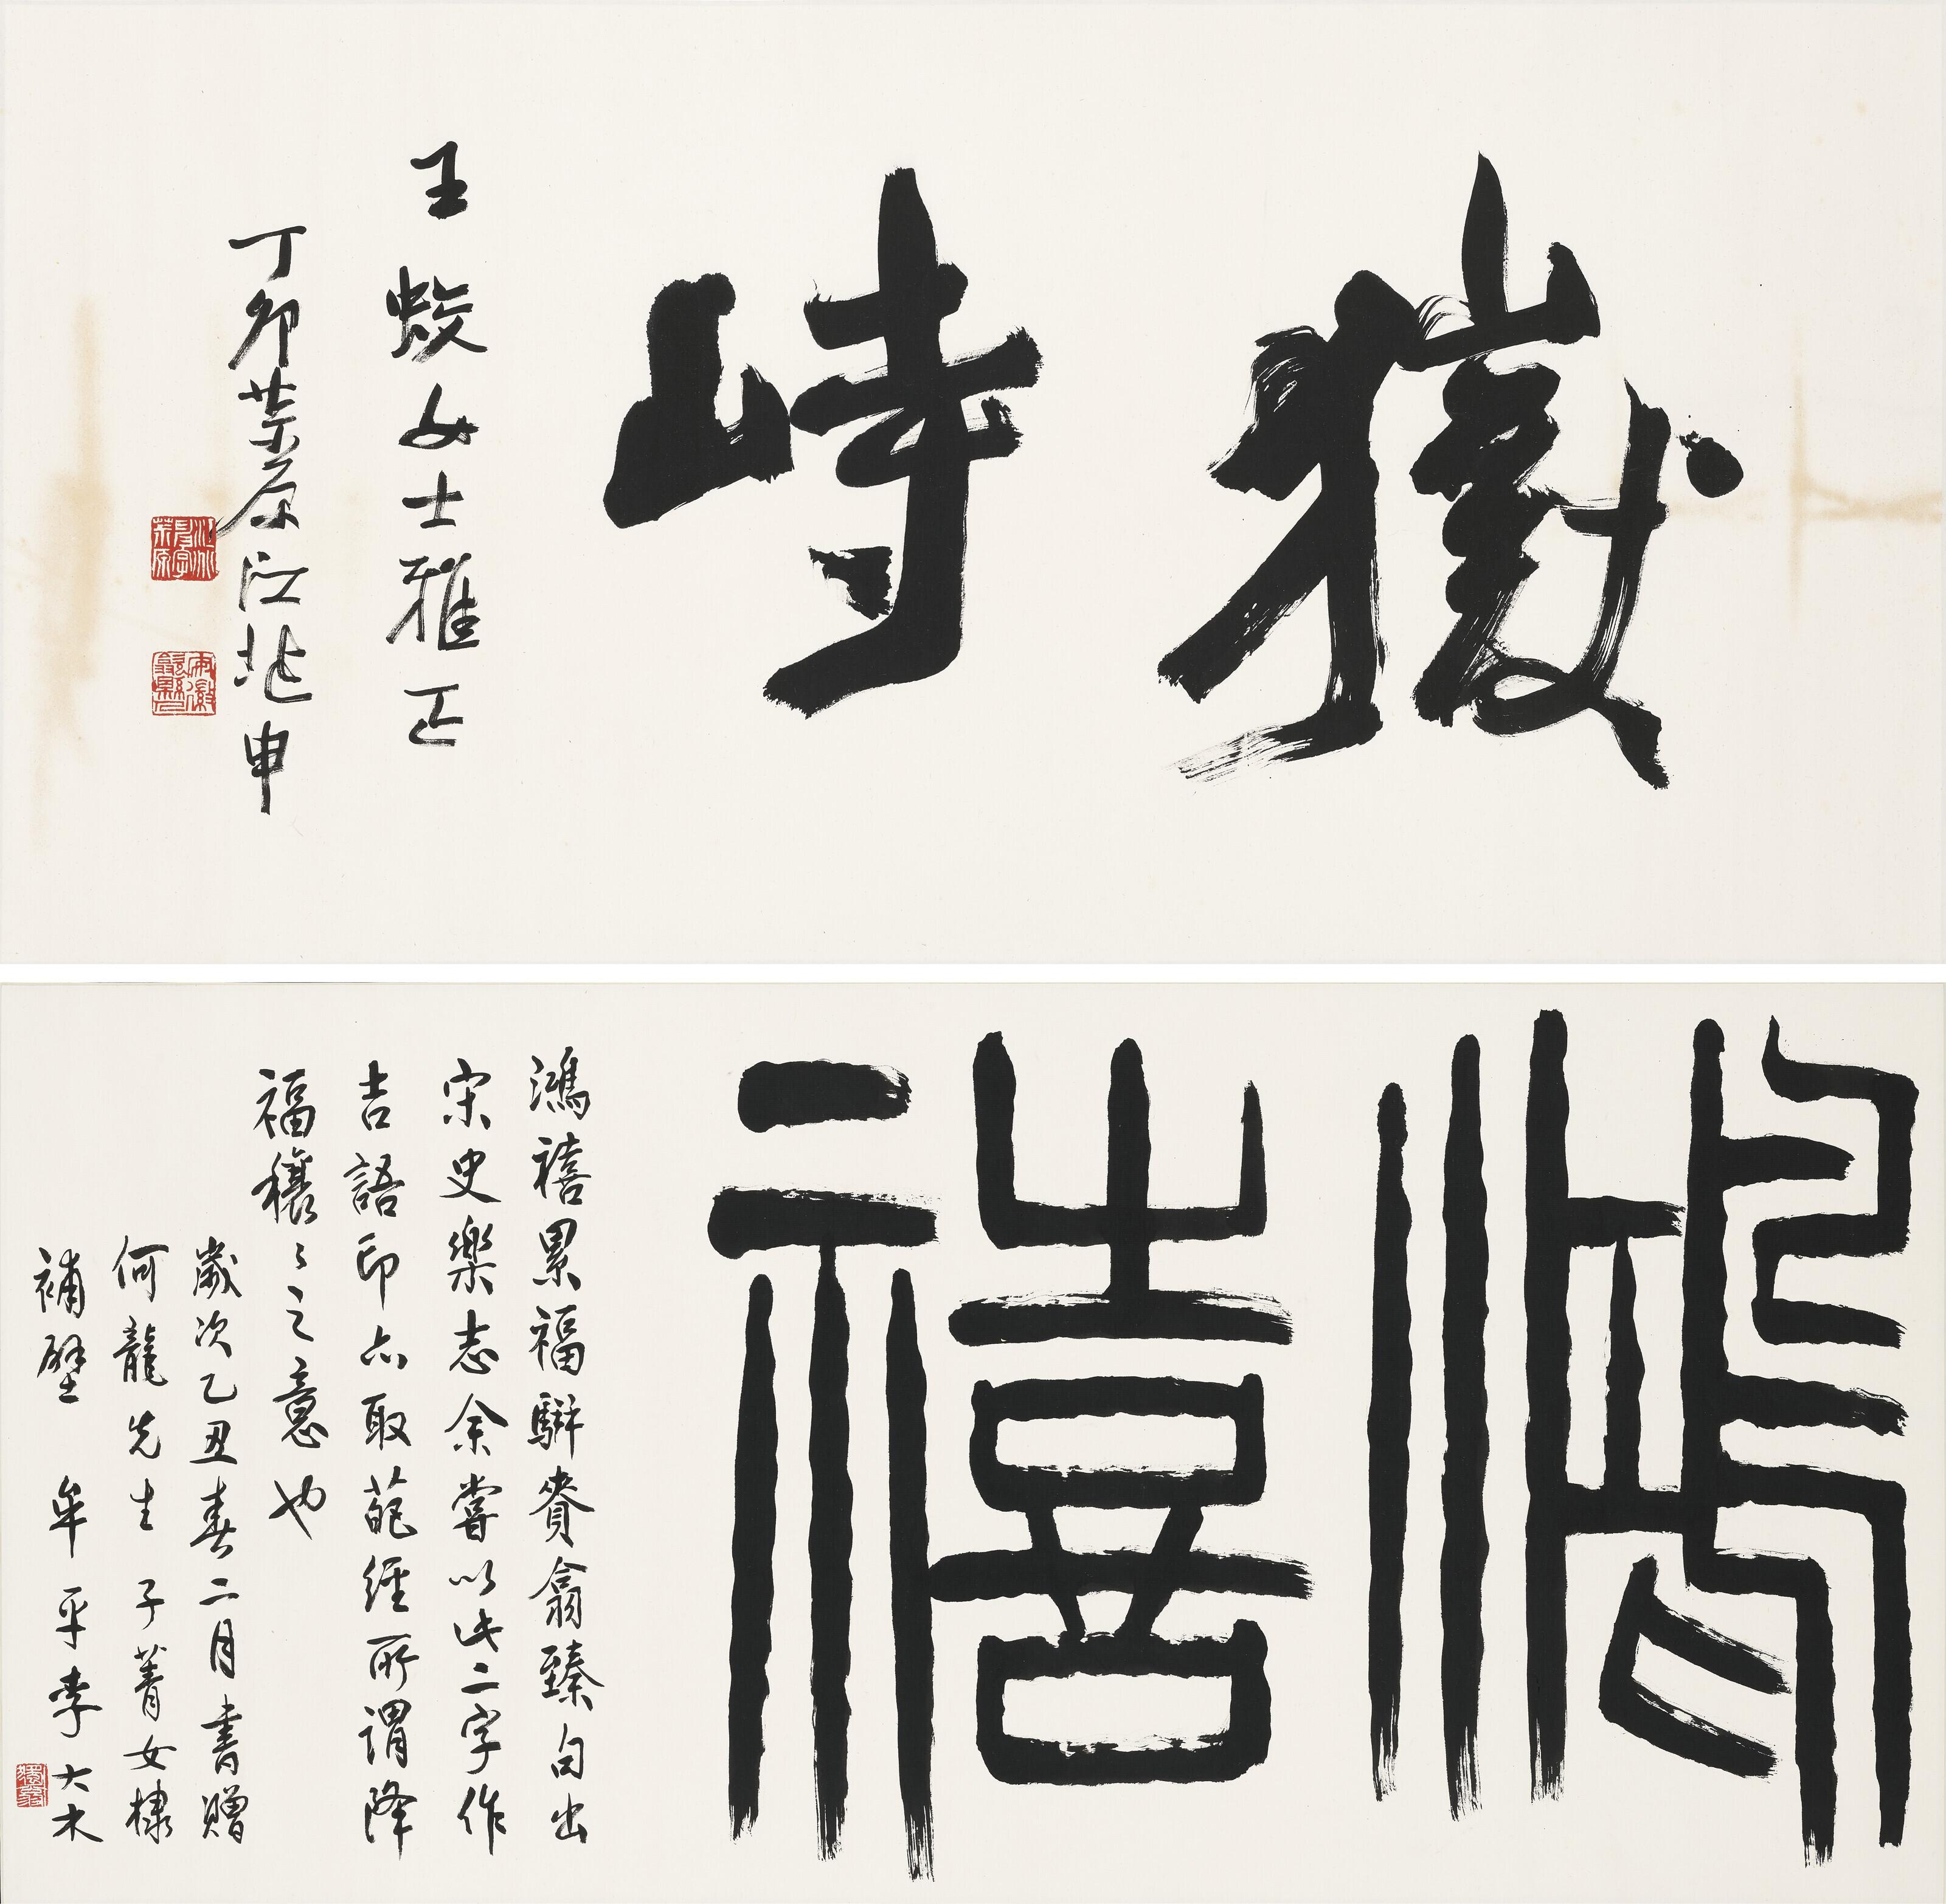 嶽峙
王女士雅正
丁卯茮原江兆申
鴻禧
鴻禧累福駢賚翕臻句出
宋史樂志余嘗以此二字作
吉語印亦取葩經所謂降
福穰〻之意也
歲次乙丑春二月書贈
何龍先生子菁女棣
補壁 牟平李大木